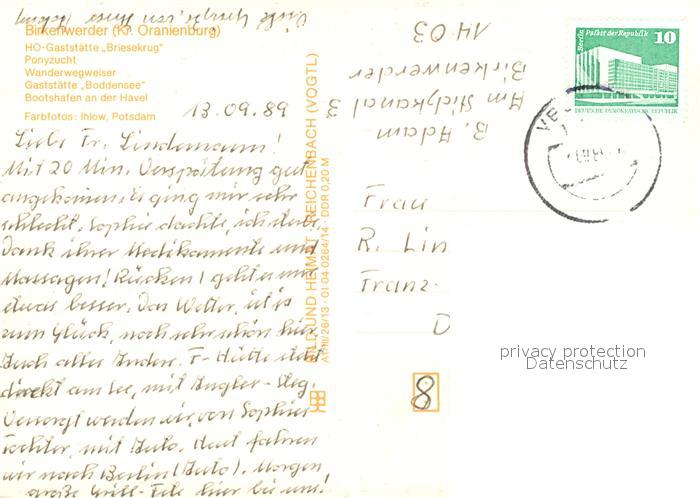 Birkenwerder (Kr. Oranienburg)
HO-Gaststätte „Briesekrug"
Ponyzucht
Wanderwegweiser
Gaststätte „Boddensee"
Bootshafen an der Havel
Farbfotos: Ihlow, Potsdam
13.09.89
Liebe Fr. Lindemann!
Mit 20 Min. Verspätung gut
angekommen. Es ging mir sehr
schlecht. Sophie dachte, ich sterbe.
Dank ihrer Medikamente und
Massagen! (Rücken) geht es mir
etwas besser. Das Wetter, ist ja
zum Glück, noch sehr schön hier.
Auch alles Andere. F-Hütte steht
direkt am See, mit Angler-Steg.
Versorgt werden wir, von Sophies
Tochter, mit Auto. Heut fahren
wir nach Berlin (Auto). Morgen
große Grill-Fete hier bei uns!
Viele Grüße, von, Ihrer
BILD UND HEIMAT REICHENBACH (VOGTL)
A1/III/26/13 · 01 04 0264/14 · DDR 0,20 M
B. Adam
Am Stichkanal 3
Birkenwerder
1403
Berlin Palast der Republik
10
DEUTSCHE DEMOKRATISCHE REPUBLIK
Frau
R. Lin
Franz-
D
8
privacy protection
Datenschutz